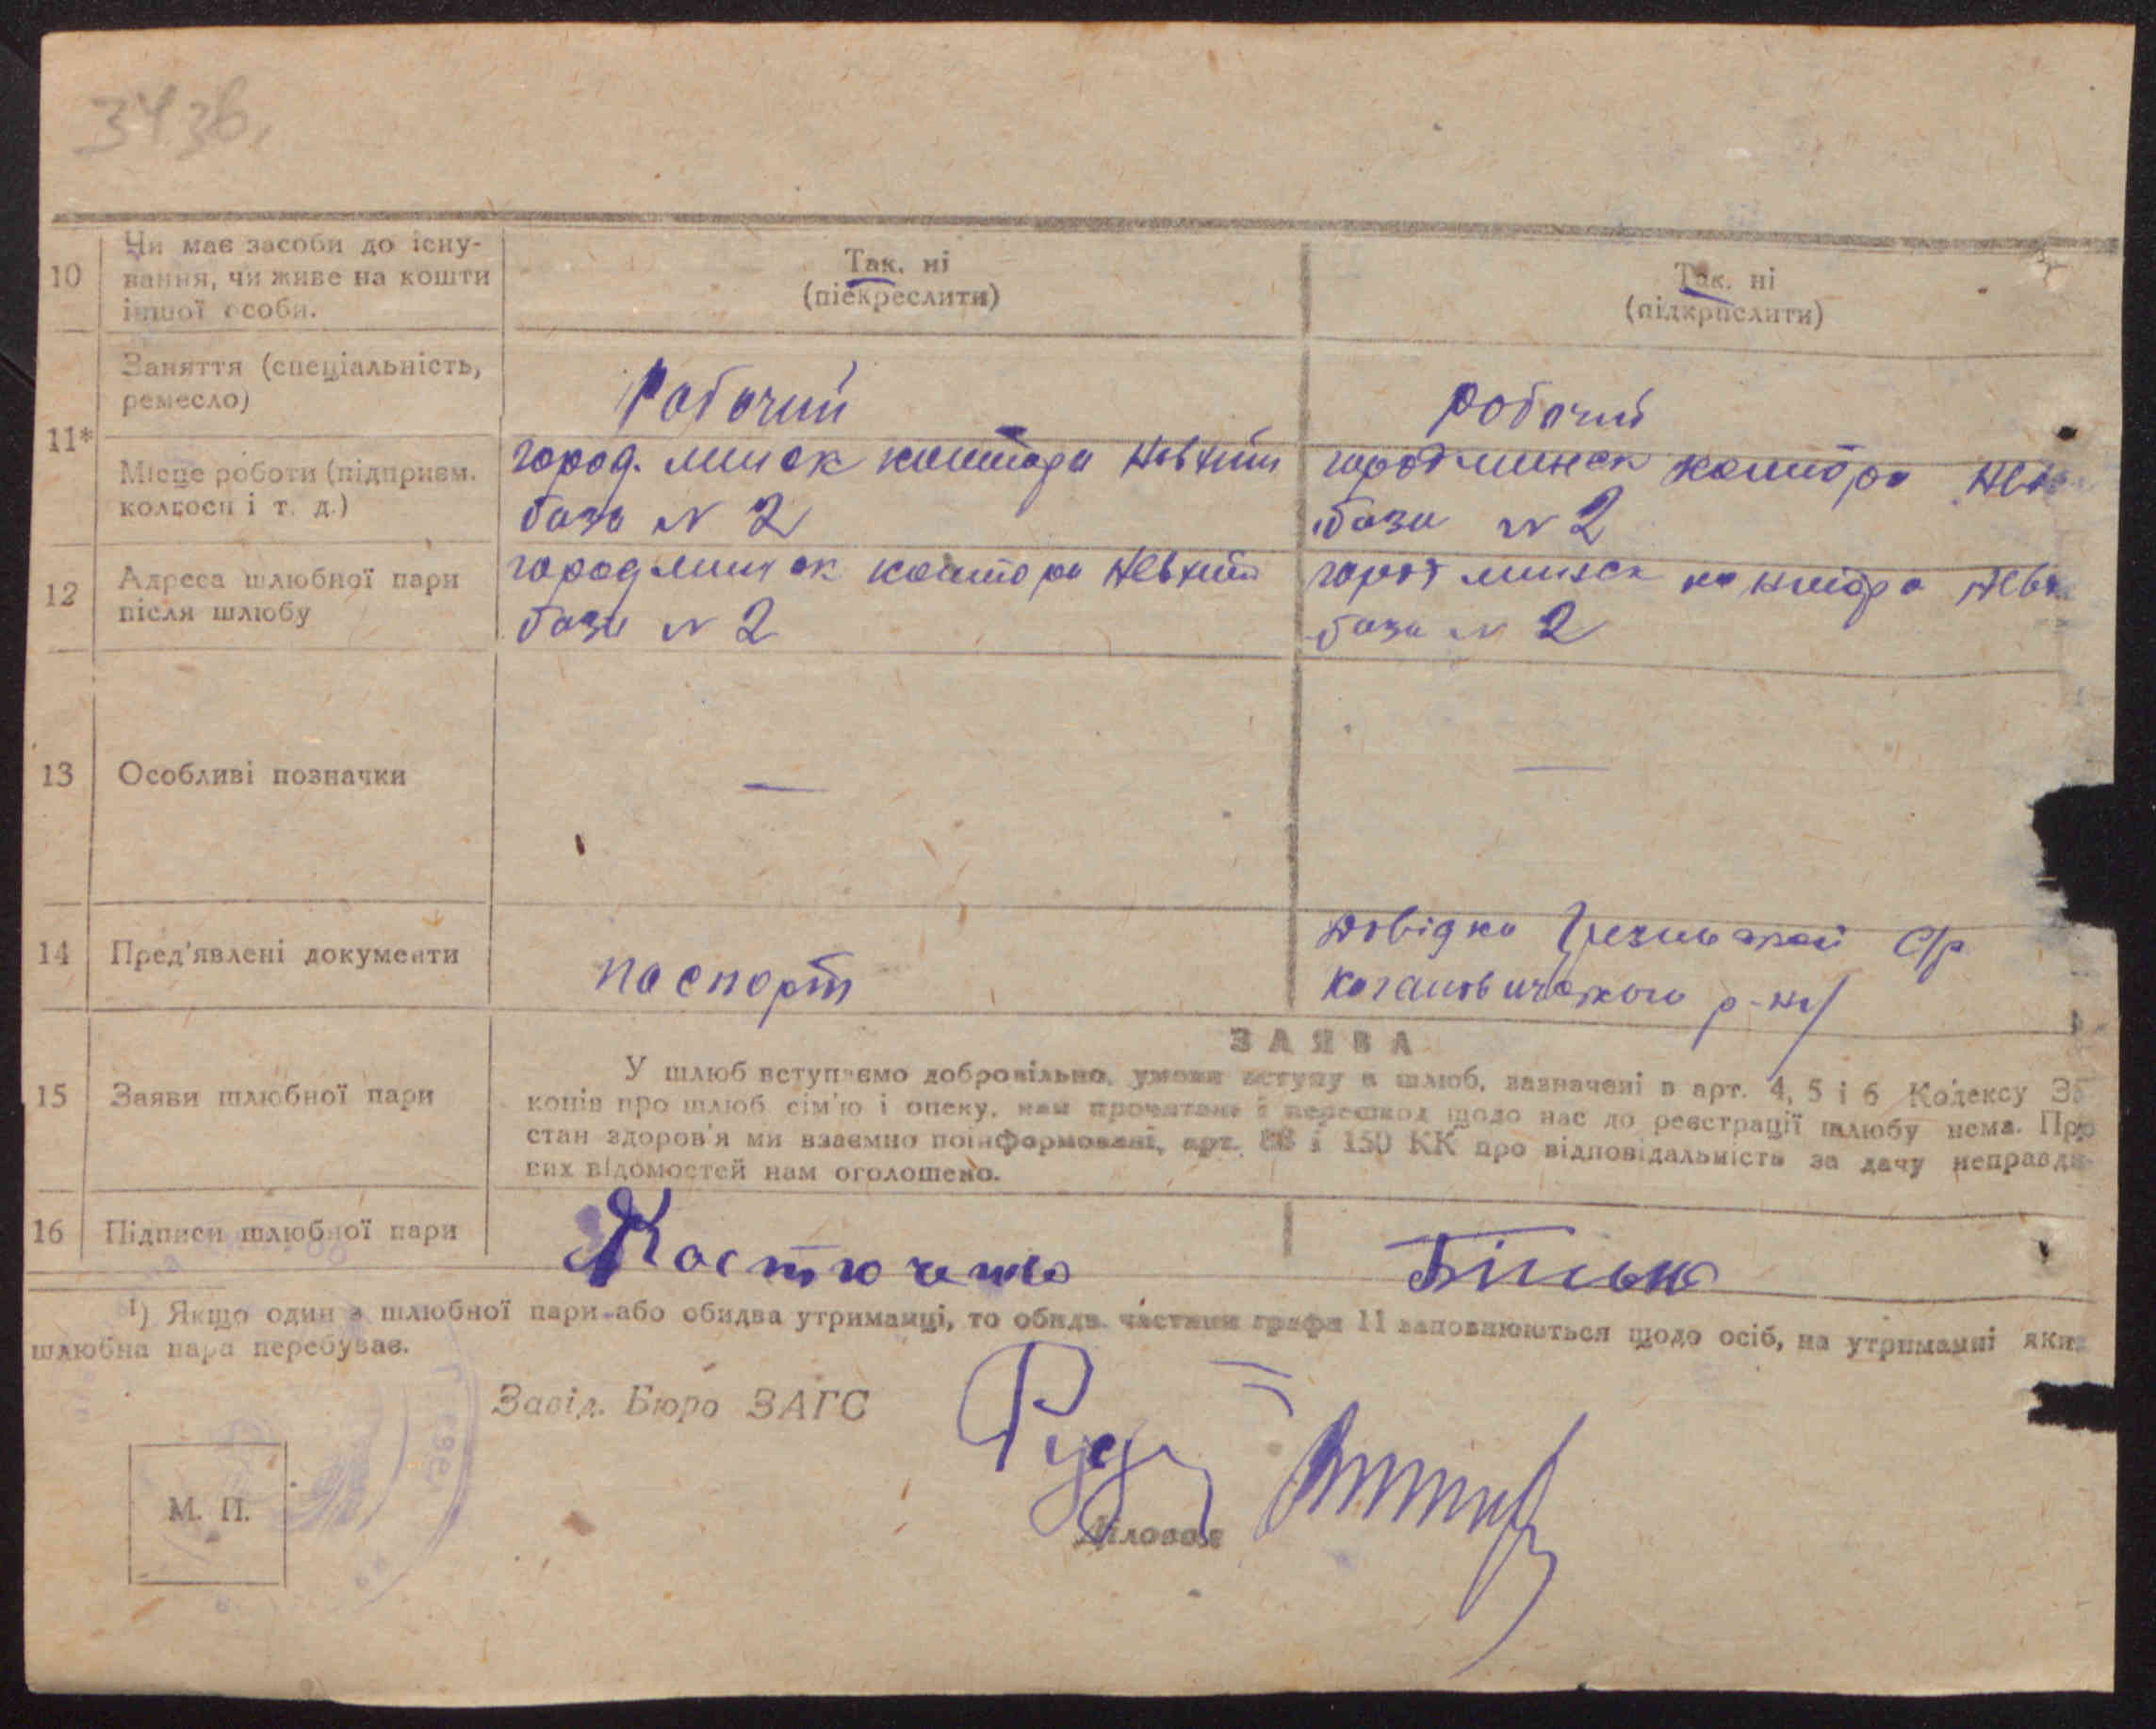 3436,
10
Чи має засоби до існу-
вання, чи живе на кошти
іншої особи.
Так. ні
(піекреслити)
Так. ні
(підкрпслити)
11*
Заняття (спеціальність,
ремесло)
Рабочий
рабочий
Місце роботи (підприєм.
колгосп і т. д.)
город. минск контора
база № 2
город минск контора
база № 2
12
Адреса шлюбної пари
після шлюбу
город минск контора
база № 2
город минск контора
база № 2
13
Особливі позначки
—
—
14
Пред'явлені документи
паспорт
Довідка С/р
Кагановичского р-на
ЗАЯВА
15
Заяви шлюбної пари
У шлюб вступаємо добровільно, умови вступу в шлюб, зазначені в арт. 4, 5 і 6 Кодексу З
конів про шлюб сім'ю і опеку, нам прочитані і перешкод щодо нас до реєстрації шлюбу нема. Про
стан здоров'я ми взаємно поінформовані, арт. 88 і 150 КК про відповідальність за дачу неправди-
вих відомостей нам оголошено.
16
Підписи шлюбної пари
Костюченко
1) Якщо один з шлюбної пари або обидва утриманці, то обидв. частини графи 11 заповнюються щодо осіб, на утриманні яки
шлюбна пара перебуває.
Завід. Бюро ЗАГС
М. П.
Діловод